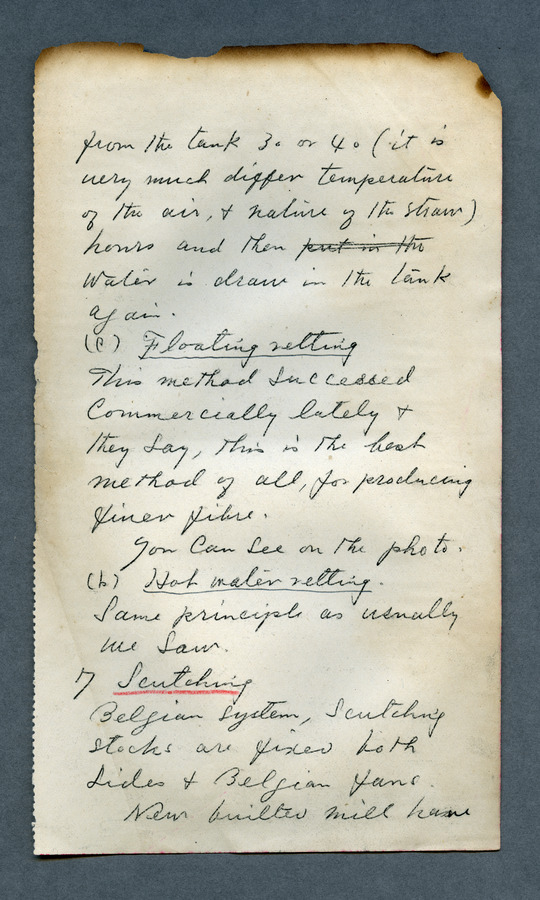 from the tank 30 or 40 (it is
very much differ temperature
of the air, & nature of the straw)
hours and then put in the
water is draw in the tank
again.
(C) Floating retting
This method successed
Commercially lately &
they say, this is the best
method of all, for producing
finer fibre.
You can see on the photo.
(b) Hot water retting.
Same principle as usually
we saw.
7 Scutching
Belgian system, Scutching
stocks are fixed both
sides & Belgian fans.
New builted mill have